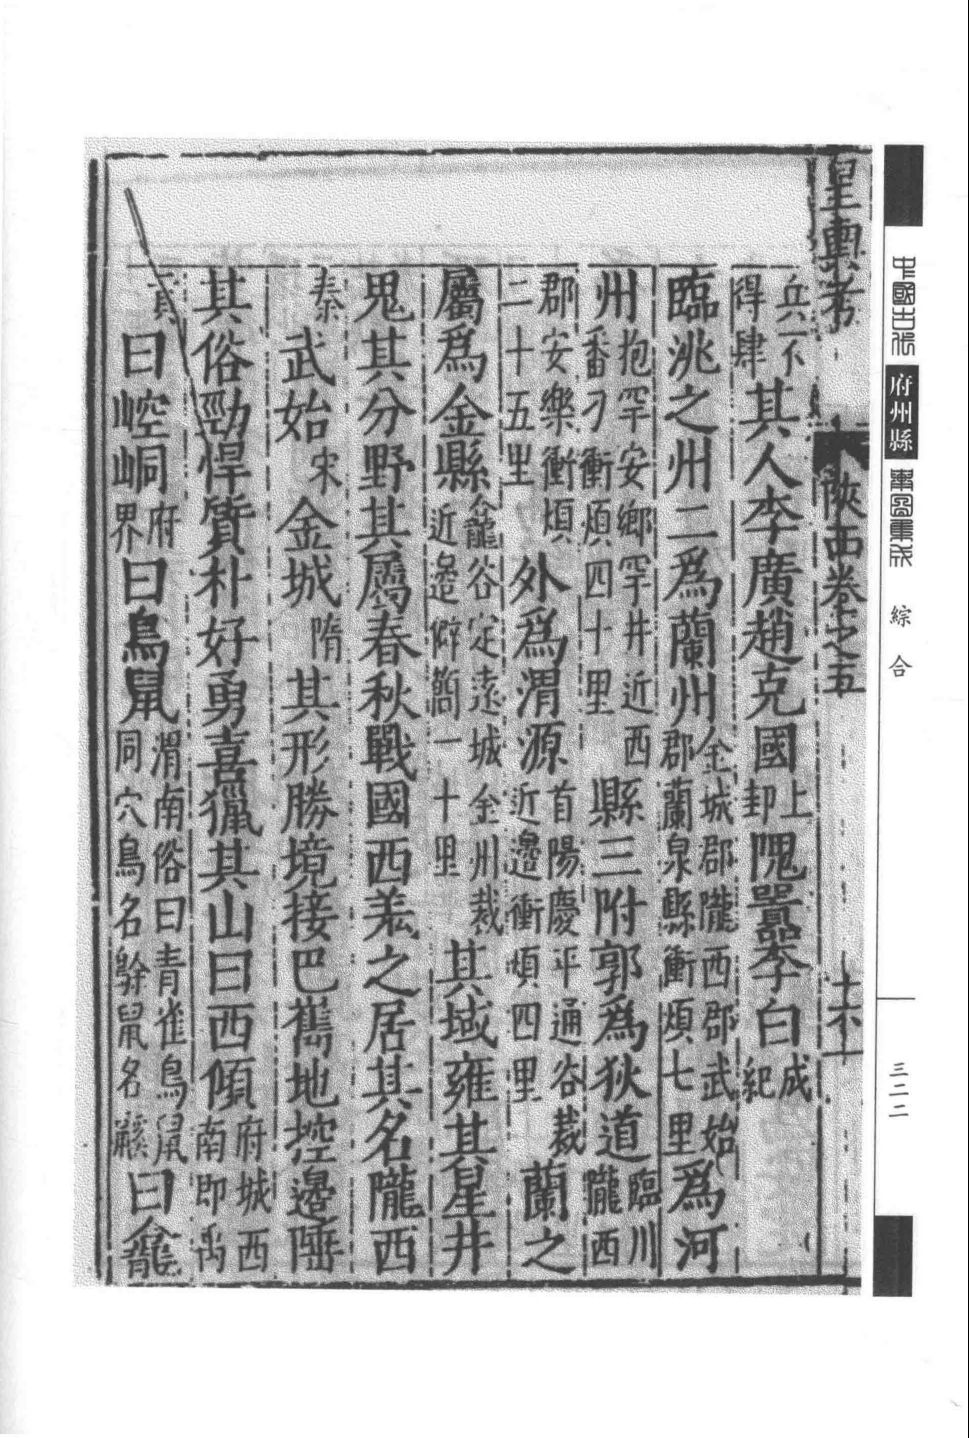 中國古代府州縣輿圖集成 綜合 三二二
皇輿考 陝西卷之五 十六
兵不得肆其人李廣趙充國上邽隗囂李白成紀
臨洮之州二爲蘭州金城郡隴西郡武始郡蘭泉縣衝煩七里爲河
州抱罕安鄉罕井近西番刁衝煩四十里縣三附郭爲狄道臨川隴西
郡安樂衝煩二十五里外爲渭源首陽慶平通谷裁近邊衝煩四里蘭之
屬爲金縣龕谷定遠城金州裁近邊僻簡一十里其域雍其星井
鬼其分野其屬春秋戰國西羌之居其名隴西
秦武始宋金城隋其形勝境接巴雟地控邊陲
其俗勁悍質朴好勇喜獵其山曰西傾府城西南即禹
貢曰崆峒府界曰鳥鼠渭南俗曰青雀鳥鼠同穴鳥名鼠名曰龕